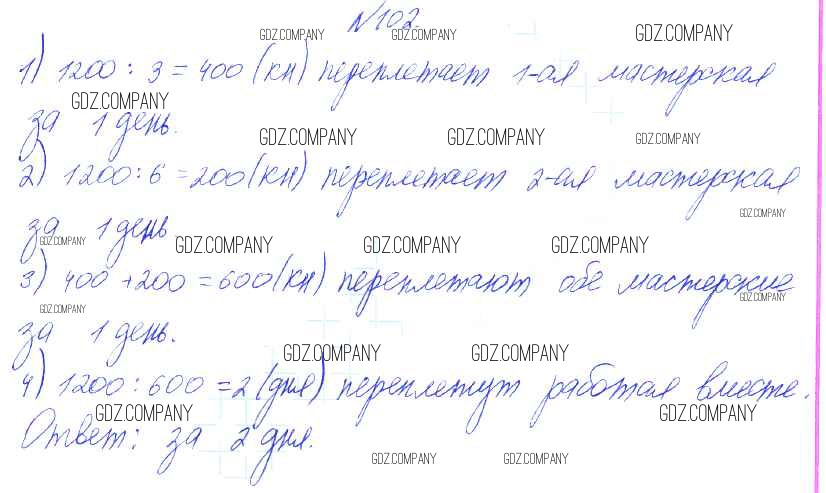 №102.
GDZ.COMPANY GDZ.COMPANY GDZ.COMPANY
1) 1200 : 3 = 400 (кн) переплетает 1-ая мастерская
GDZ.COMPANY
за 1 день.
GDZ.COMPANY GDZ.COMPANY GDZ.COMPANY
2) 1200 : 6 = 200 (кн) переплетает 2-ая мастерская
GDZ.COMPANY
за 1 день
GDZ.COMPANY GDZ.COMPANY GDZ.COMPANY GDZ.COMPANY
3) 400 + 200 = 600 (кн) переплетают обе мастерские
GDZ.COMPANY
GDZ.COMPANY
за 1 день.
GDZ.COMPANY GDZ.COMPANY
4) 1200 : 600 = 2 (дня) переплетут работая вместе.
GDZ.COMPANY GDZ.COMPANY
Ответ: за 2 дня.
GDZ.COMPANY GDZ.COMPANY